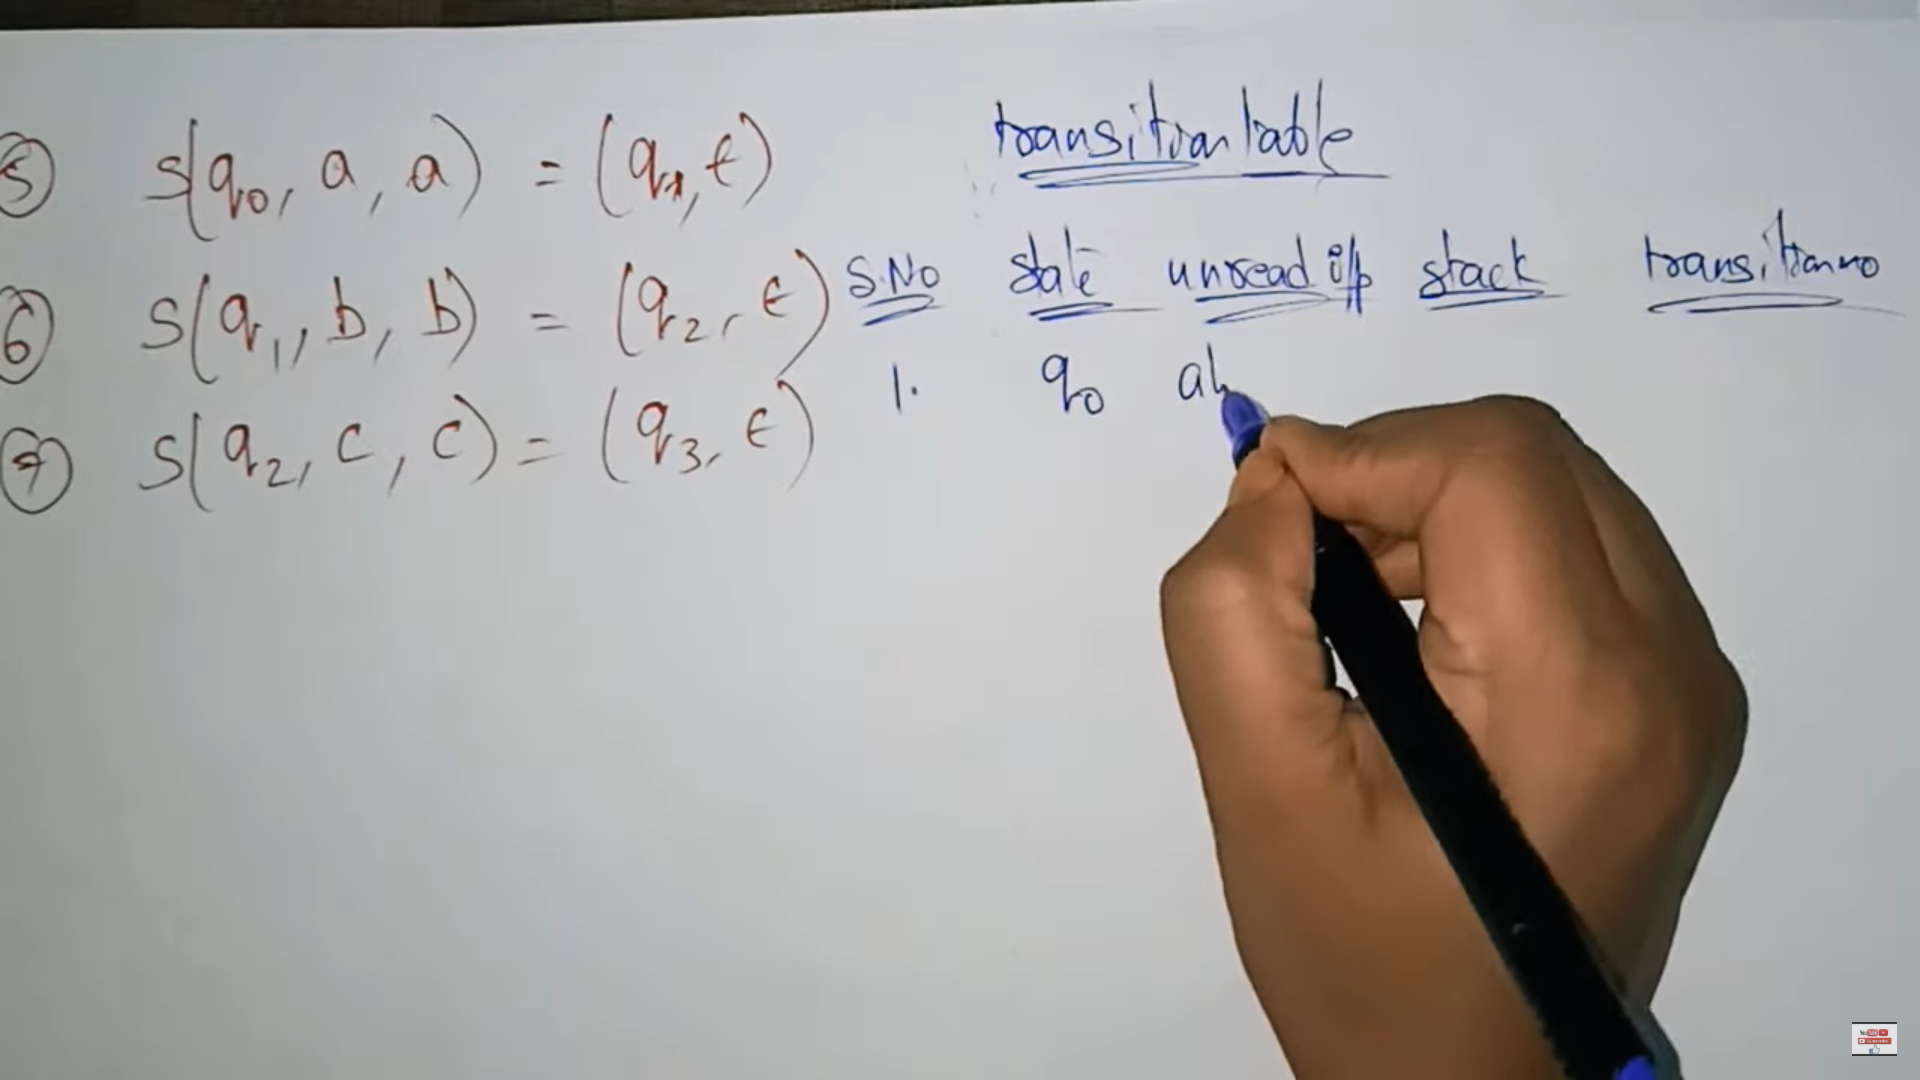 5 δ(q0, a, a) = (q1, ε)
6 δ(q1, b, b) = (q2, ε)
7 δ(q2, c, c) = (q3, ε)
transition table
S.No state unread i/p stack transition no
1. q0 ab